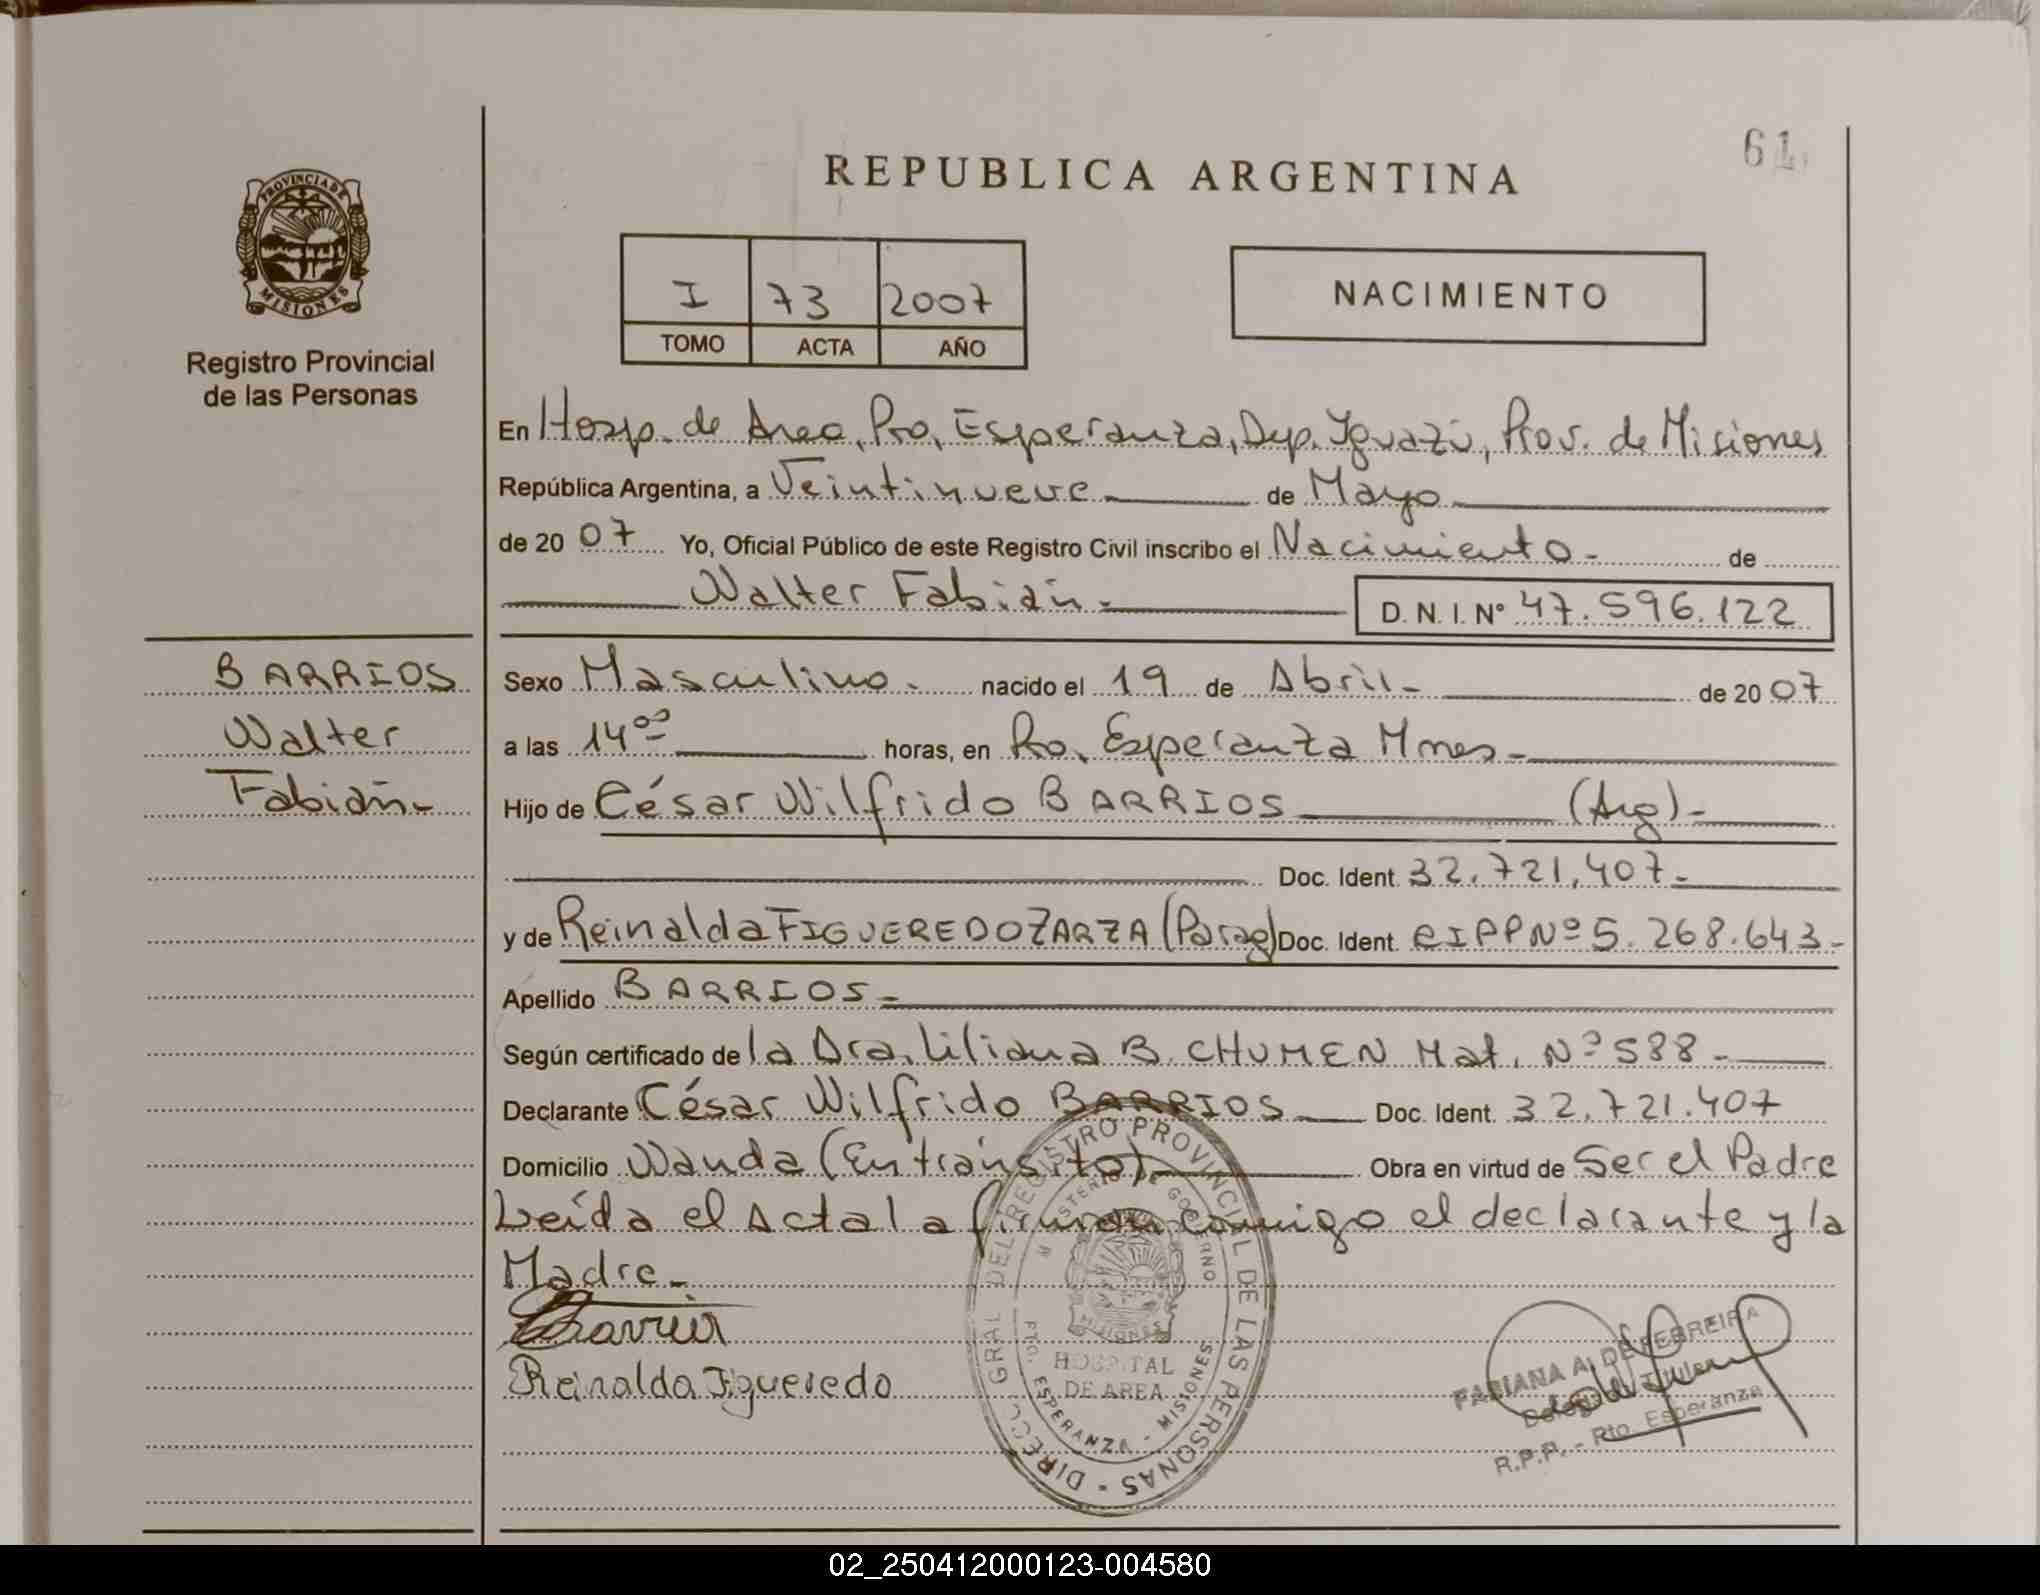 61
REPUBLICA ARGENTINA
PROVINCIA DE
MISIONES
Registro Provincial
de las Personas
I 73 2007
TOMO ACTA AÑO
NACIMIENTO
En Hosp. de Area, Pto, Esperanza, Dep. Iguazú, Prov. de Misiones
República Argentina, a Veintinueve de Mayo
de 20 07 Yo, Oficial Público de este Registro Civil inscribo el Nacimiento - de
Walter Fabián.-
D. N. I. Nº 47.596.122
BARRIOS
Walter
Fabián.-
Sexo Masculino. nacido el 19 de Abril- de 20 07
a las 14⁰⁰ horas, en Pto. Esperanza Mnes-
Hijo de César Wilfrido BARRIOS (Arg)-
Doc. Ident. 32.721.407-
y de Reinalda FIGUEREDO ZARZA (Parag) Doc. Ident. CIPPNº 5.268.643-
Apellido BARRIOS-
Según certificado de la Dra. Liliana B. CHUMEN Mat. Nº 588-
Declarante César Wilfrido BARRIOS Doc. Ident. 32.721.407
Domicilio Wanda (En tránsito)- Obra en virtud de Ser el Padre
Leída el Acta la firman conmigo el declarante y la
Madre-
Reinalda Figueredo
DIRECC. GRAL DEL REGISTRO PROVINCIAL DE LAS PERSONAS -
MINISTERIO DE GOBIERNO
MISIONES
HOSPITAL
DE AREA
PTO. ESPERANZA - MISIONES
FABIANA A. DE FERREIRA
Delegada Titular
R.P.P. - Pto. Esperanza
02_250412000123-004580